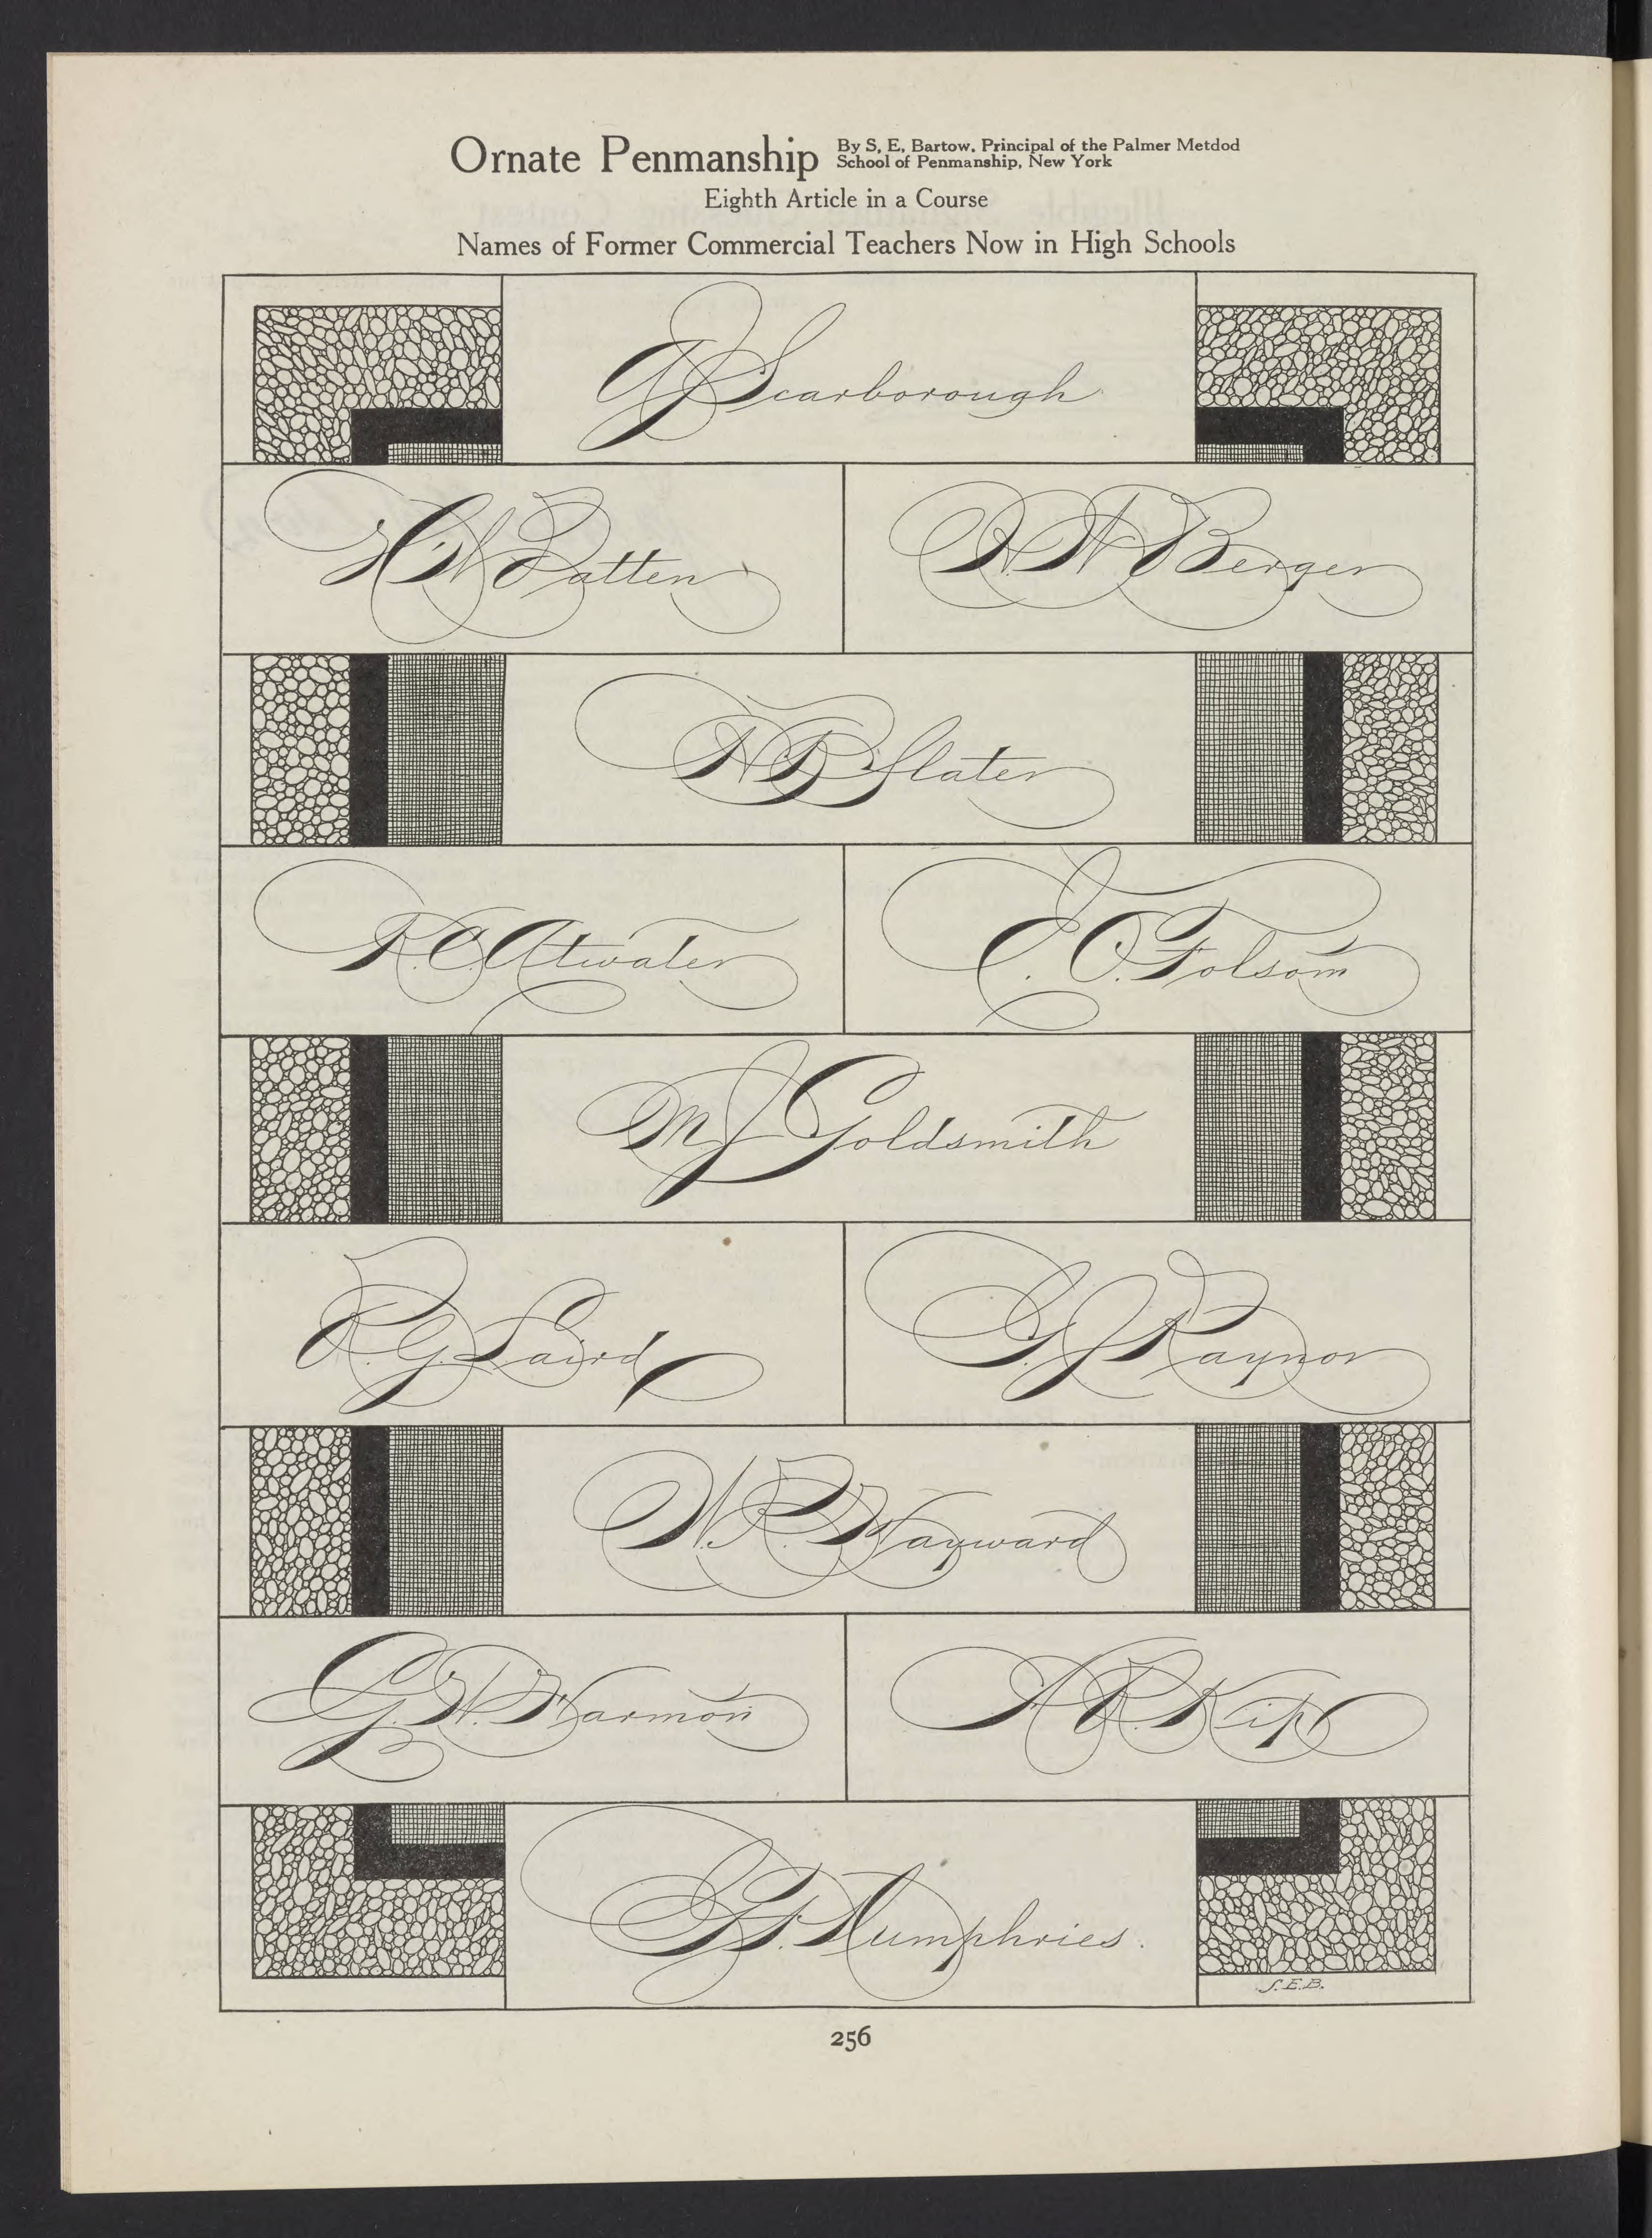 Ornate Penmanship By S. E. Bartow. Principal of the Palmer Metdod
School of Penmanship, New York
Eighth Article in a Course
Names of Former Commercial Teachers Now in High Schools
Scarborough
Patten
Berger
Slater
R. C. Atwater
E. O. Folsom
M J Goldsmith
R. G. Laird
G. J. Raynor
W. P. Hayward
G. W. Harmon
A. R. Kip
Humphries.
S.E.B.
256